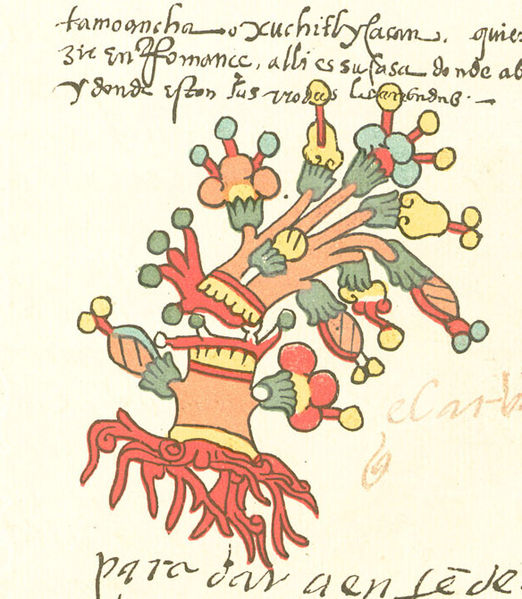 tamoancha o xuchitlycacan. quier
zir en Romance, alli es su casa donde ab
y donde eston sus rrosas
para dar a en tēde